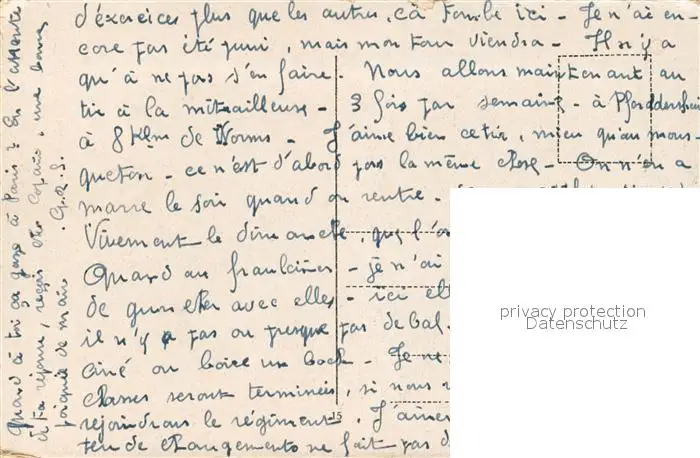 d'exercices plus que les autres, çà tombe ici - Je n'ai en-
core pas été puni, mais mon tour viendra - Il n'y a
qu'à ne pas s'en faire - Nous allons maintenant au
tir à la mitrailleuse - 3 fois par semaine - à Pfeddersheim
à 8 Klm de Worms - J'aime bien ce tir, mieux qu'au mous-
queton - ce n'est d'abord pas la même chose - On n'en a
marre le soir quand on rentre -
Vivement le dimanche, que l'on
Quand au fraulaines - je n'ai
de guncher avec elles - ici ell
il n'y a pas ou presque pas de bal -
ciné ou boire un bock - Je ne
classes seront terminées, si nous
rejoindrons le régiment - J'aimer
peu de changements ne fait pas d
15
Quand à toi ça gaze à Paris ? En l'attente
de ta réponse, reçois cher Copain, une bonne
poignée de main
privacy protection
Datenschutz